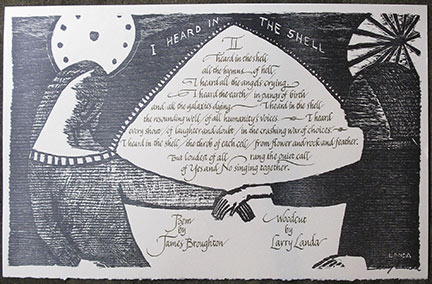 I HEARD IN THE SHELL
II
I heard in the shell
all the hymns of hell
I heard all the angels crying
I heard the earth in pangs of birth
and all the galaxies dying I heard in the shell
the resounding well of all humanity's voices I heard
every shout of laughter and doubt in the crashing war of choices
I heard in the shell the throb of each cell from flower and rock and feather.
But loudest of all rang the quiet call
of Yes and No singing together.
Poem
by
James Broughton
Woodcut
by
Larry Landa
LANDA